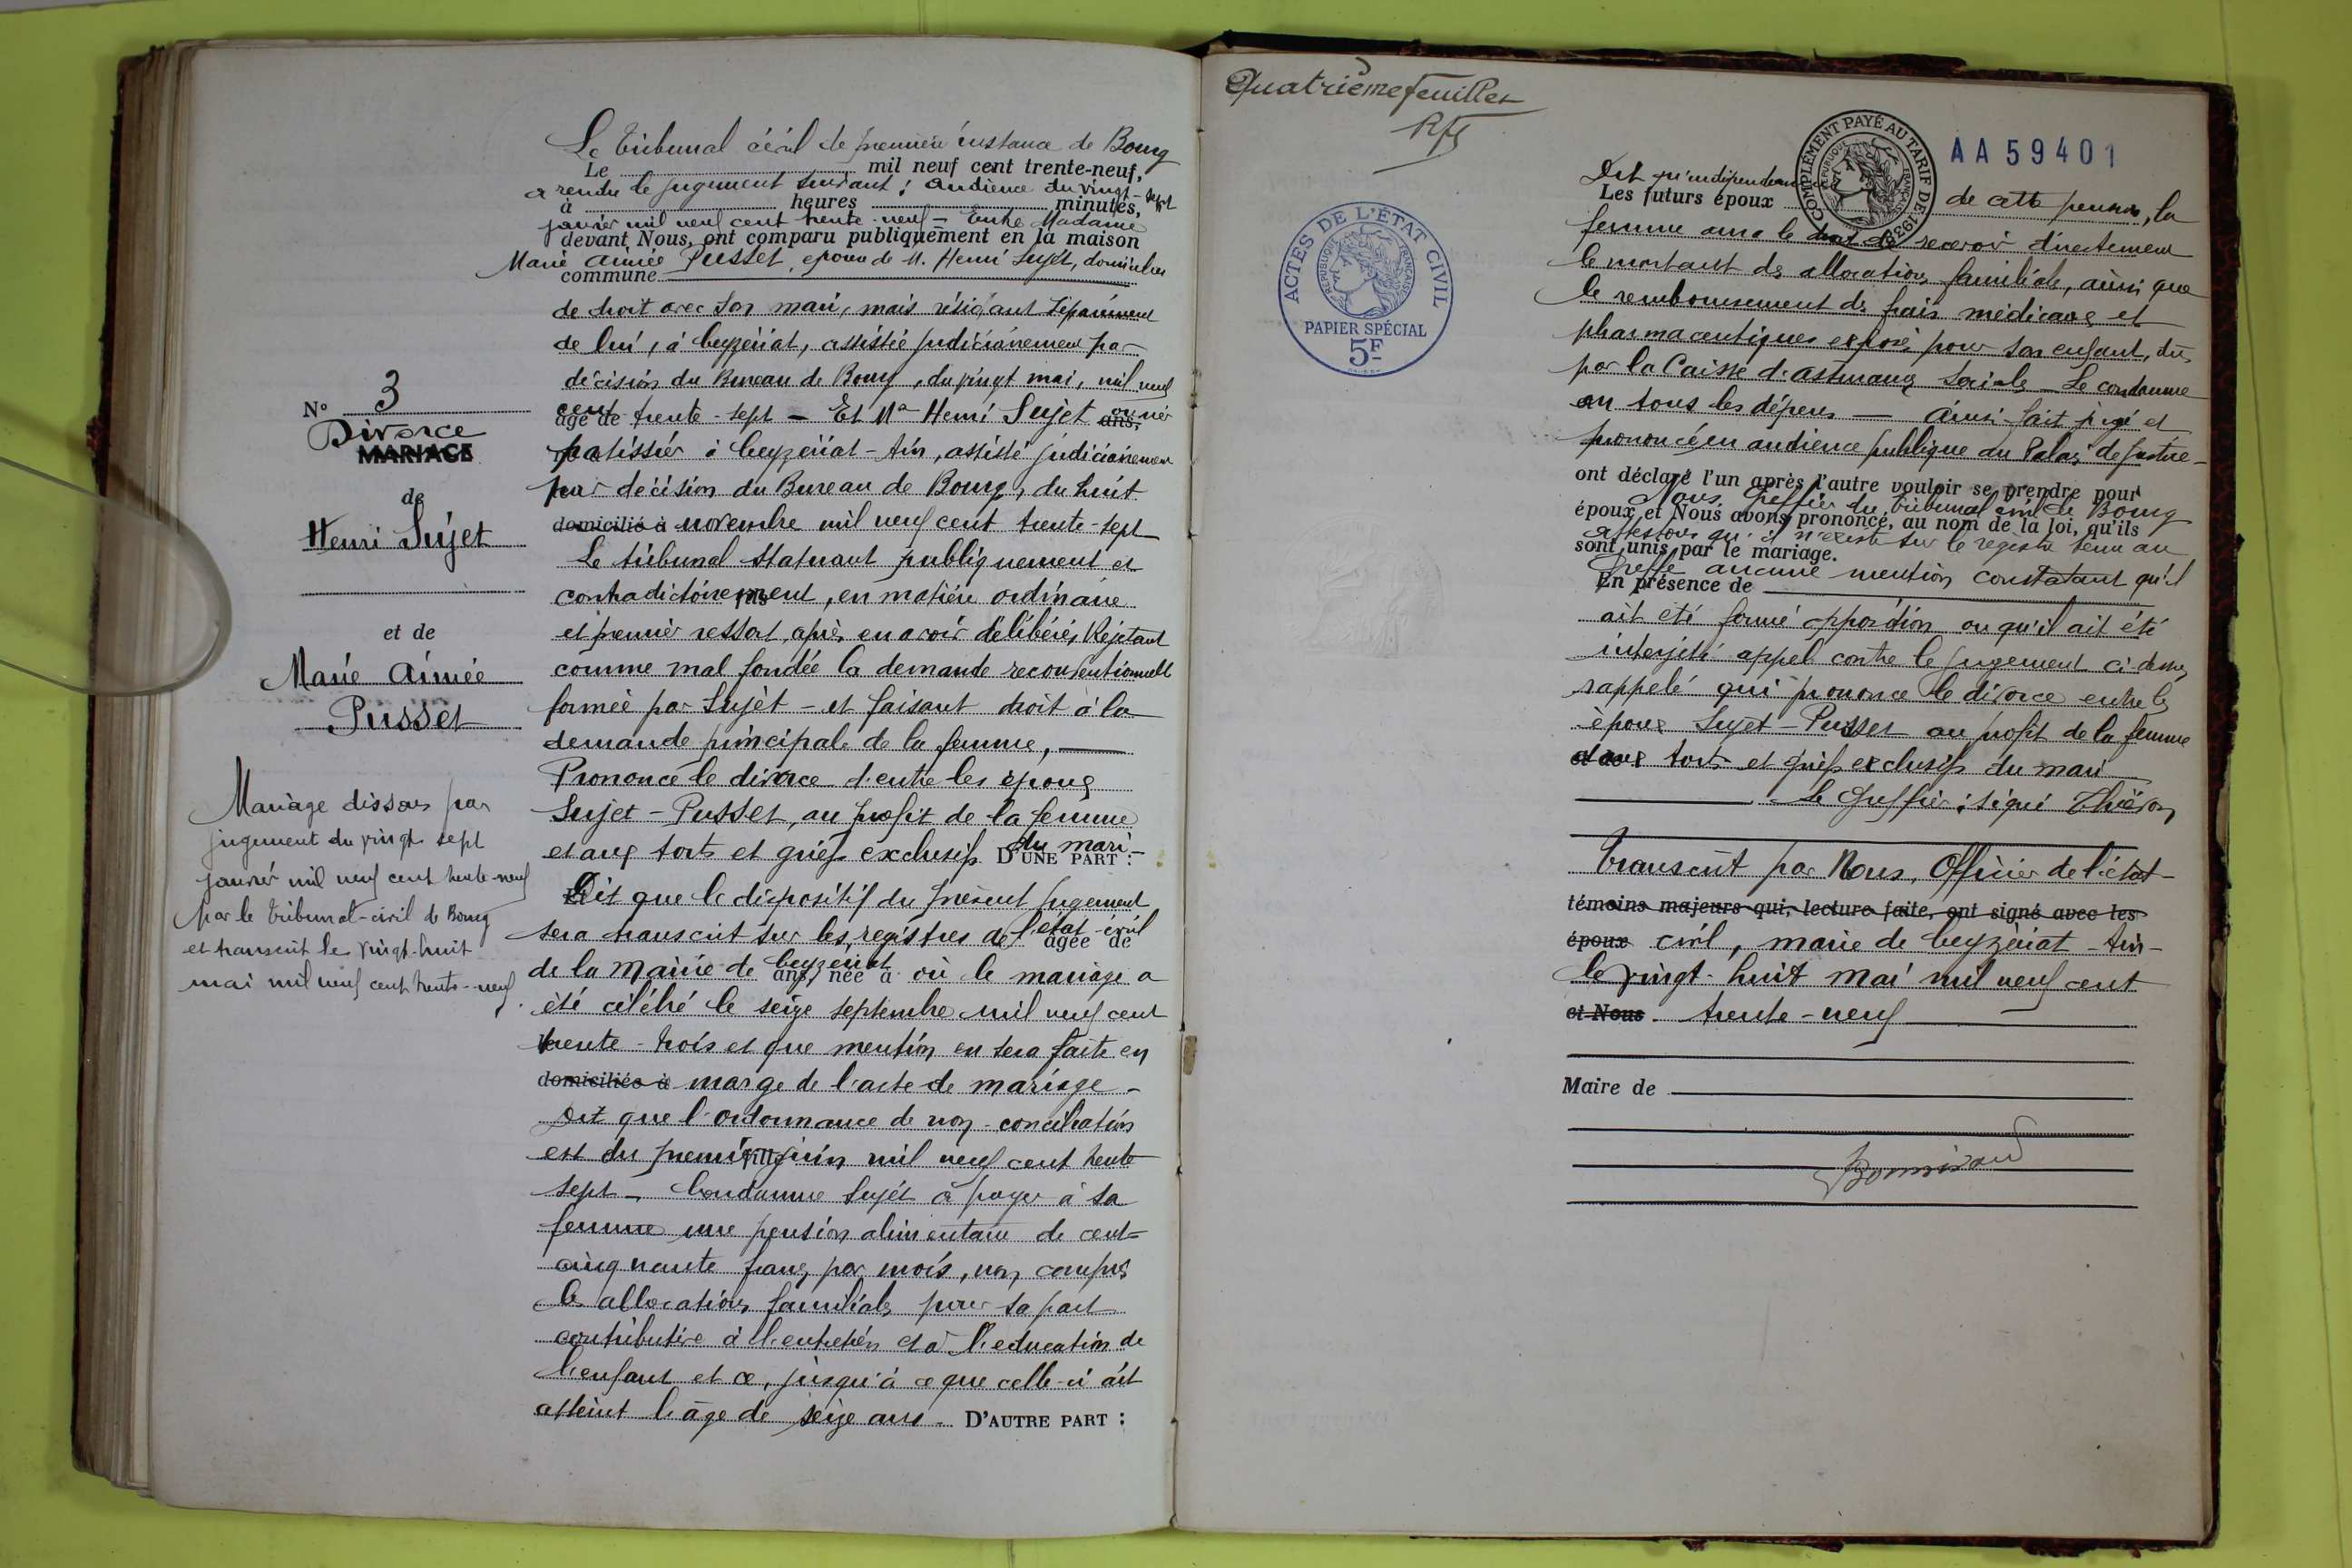 Le tribunal civil de première instance de Bourg
Le mil neuf cent trente-neuf,
a rendu le jugement suivant : audience du vingt-sept
à heures minutes,
janvier mil neuf cent trente-neuf – Entre Madame
devant Nous, ont comparu publiquement en la maison
Marie Aimée Pusset, épouse de M. Henri Sujet, domiciliée
commune
de droit avec son mari, mais résidant séparément
de lui, à Ceyzériat, assistée judiciairement par
décision du Bureau de Bourg, du vingt mai, mil neuf
cent
âgé de trente-sept – Et Mr Henri Sujet ouvrier
ans,
patissier à Ceyzériat-Ain, assisté judiciairement
par décision du Bureau de Bourg, du huit
domicilié à novembre mil neuf cent trente-sept
Le tribunal statuant publiquement et
contradictoirement, en matière ordinaire
fils
et premier ressort, après en avoir délibéré, Rejetant
comme mal fondée la demande reconventionnelle
formée par Sujet – et faisant droit à la
demande principale de la femme,
Prononce le divorce d'entre les époux
Sujet – Pusset, au profit de la femme
et aux torts et griefs exclusifs du mari –
D'UNE PART :
Dit que le dispositif du présent jugement
sera transcrit sur les registres de l'état-civil
âgée de
de la Mairie de Ceyzériat où le mariage a
ans, née à
été célébré le seize septembre mil neuf cent
trente-trois et que mention en sera faite en
domiciliée à marge de l'acte de mariage –
Dit que l'ordonnance de non-conciliation
est du premier juin mil neuf cent trente
fille
sept – Condamne Sujet à payer à sa
femme une pension alimentaire de cent-
cinquante francs par mois, non compris
les allocations familiales pour sa part
contributive à l'entretien et à l'education de
l'enfant et ce, jusqu'à ce que celle-ci ait
atteint l'âge de seize ans. D'AUTRE PART :
N° 3
Divorce
MARIAGE
de
Henri Sujet
et de
Marie Aimée
Pusset
Mariage dissous par
jugement du vingt sept
janvier mil neuf cent trente-neuf
par le tribunal-civil de Bourg
et transcrit le vingt-huit
mai mil neuf cent trente-neuf.
Quatrième feuillet
ACTES DE L'ÉTAT CIVIL
RÉPUBLIQUE FRANÇAISE
PAPIER SPÉCIAL
5F
COMPLÉMENT PAYÉ AU TARIF DE 193
RÉPUBLIQUE FRANÇAISE
AA 59401
Dit qu'indépendamment
Les futurs époux de cette pension, la
femme aura le droit de recevoir directement
le montant des allocations familiales, ainsi que
le remboursement des frais médicaux et
pharmaceutiques exposés pour son enfant, dûs
par la Caisse d'assurances sociales – Le condamne
en tous les dépens – Ainsi fait jugé et
prononcé en audience publique au Palais de justice –
ont déclaré l'un après l'autre vouloir se prendre pour
Nous, Greffier du tribunal civil de Bourg
époux et Nous avons prononcé, au nom de la loi, qu'ils
attestons qu'il n'existe sur le registre tenu au
sont unis par le mariage.
Greffe aucune mention constatant qu'il
En présence de
ait été formé opposition ou qu'il ait été
interjeté appel contre le jugement ci-dessus
rappelé qui prononce le divorce entre les
époux Sujet – Pusset au profit de la femme
et aux torts et griefs exclusifs du mari
Le Greffier : signé Thiéron
Transcrit par Nous, Officier de l'état-
témoins majeurs qui, lecture faite, ont signé avec les
époux civil, mairie de Ceyzériat-Ain-
le vingt-huit mai mil neuf cent
et Nous trente-neuf
Maire de